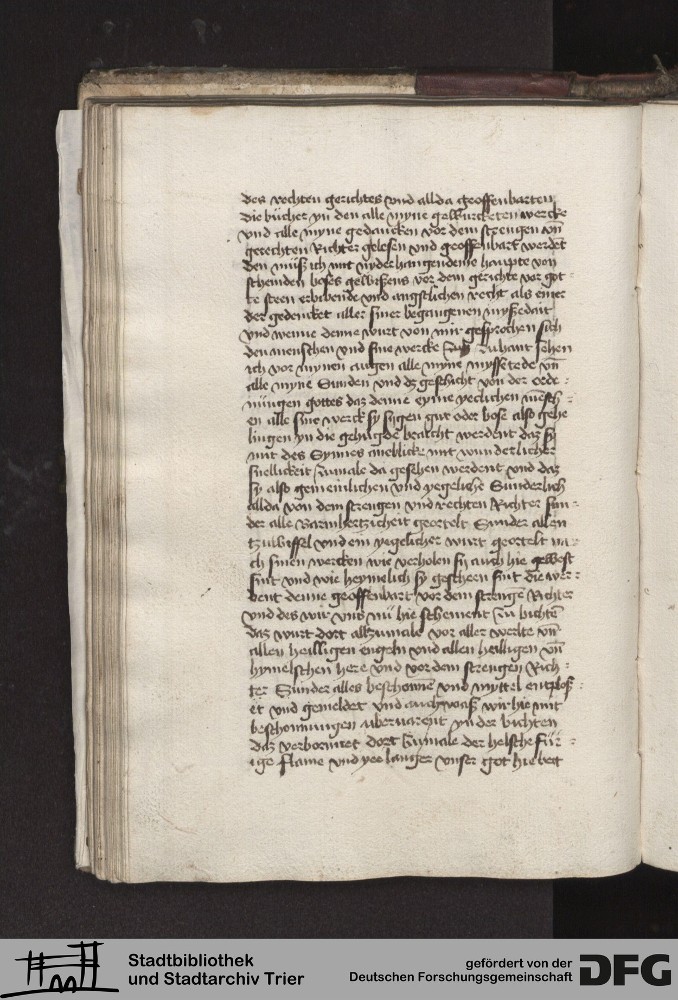 des rechten gerichtes vnd allda geoffenbarten
die bücher yn den alle myne gewurcketen wercke
vnd alle myne gedancken vor dem strengen vn̄
gerechten Richter gelesen vnd geoffenbart werdet
den müß ich mit nyderhangendeme haupte von
schemden boses gewißens vor dem gerichte vor got
te steen erbibende vnd angstlichen recht als einer
der gedencket aller siner begangenen myssedait
vnd wenne denne wurt von mir gesprochen sich
den menschen vnd sine wercke zu hant sehen
ich vor mynen augen alle myne myssetede vn̄
alle myne Sunden vnd dz geschicht von der orde
nüngen gottes daz denne eyme yeclichen mēsch
en alle sine werck sy sygen gut oder bose also gehe
lingen yn die gehugde bracht werdent daz sy
mit des Synnes aneblicke mit wunderlicher
snellickeit zumale da gesehen werdent vnd daz
sy also gemeinlichen vnd yegeliche Sunderlich
allda von dem strengen vnd rechten Richter sun
der alle Barmhertzicheit georteilt Sunder allen
tzwiffel vnd ein yegelicher wurt georteilt na
ch sinen wercken wie verholen sy auch hie gewest
sint vnd wie heymelich sy gescheen sint die wer
dent denne geoffenbart vor dem strenge Richter
vnd des wir vns nü hie schement zu bichtē
daz wurt dort allzumale vor aller werlte vn̄
allen heilligen engeln vnd allen heilligen vn̄
hymelschen here vnd vor dem strengen Rich
ter Sunder alles beschonne vnd myttel entploß
et vnd gemeldet vnd auch waß wir hie mit
beschonnungen yn der bichten
daz verbornnet dort zumale der helsche für
ige flame vnd yee langer vnser got hie beit
Stadtbibliothek
und Stadtarchiv Trier
gefördert von der
Deutschen Forschungsgemeinschaft
DFG